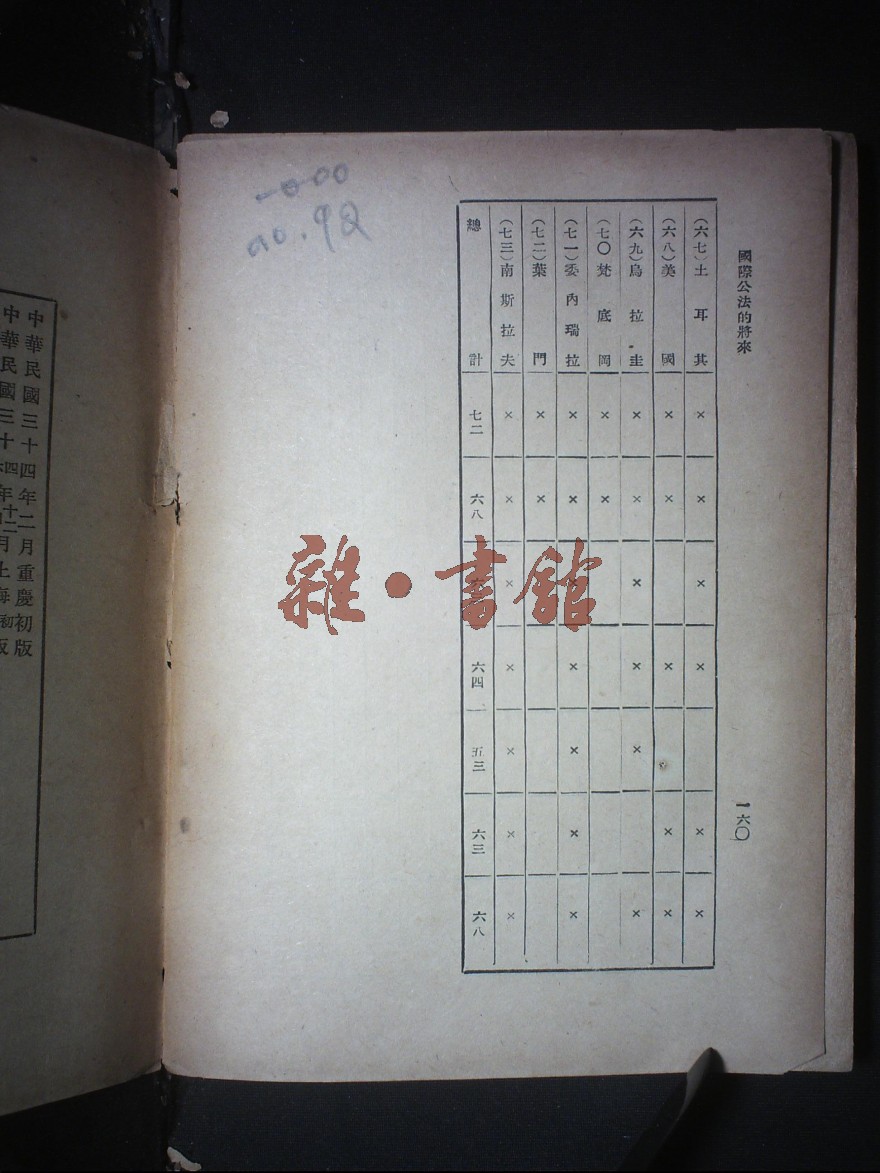 國際公法的將來
一六〇
(六七)土耳其 × × × × × ×
(六八)美國 × × × × ×
(六九)烏拉圭 × × × × × ×
(七〇)梵底岡 × ×
(七一)委內瑞拉 × × × × × × ×
(七二)葉門 × ×
(七三)南斯拉夫 × × × × × × ×
總計 七二 六八 六四 五三 六三 六八
雜·書館
中華民國三十四年二月重慶初版
中華民國三十